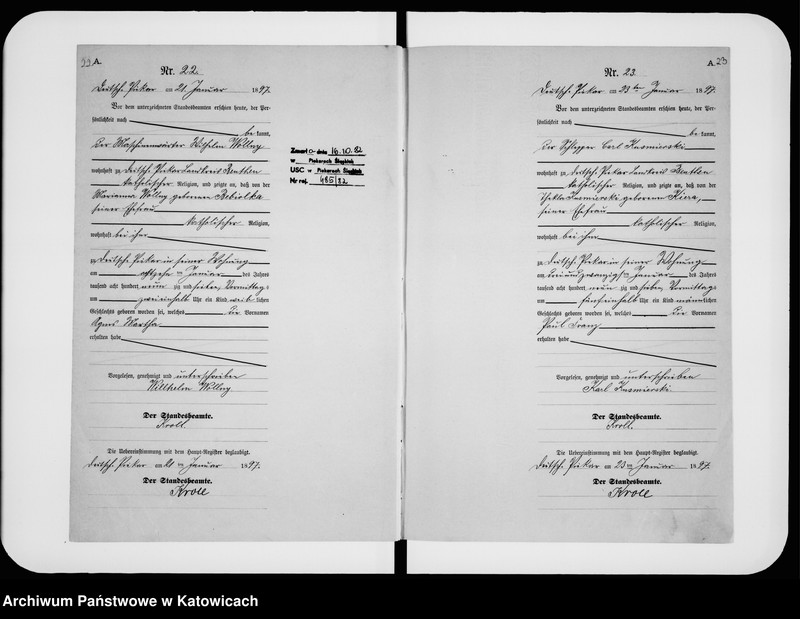 22 A.
Nr. 22.
Deutsch Piekar am 21. Januar 1897.
Vor dem unterzeichneten Standesbeamten erschien heute, der Per-
sönlichkeit nach
be kannt,
der Maschinenwärter Wilhelm Wollny
wohnhaft zu Deutsch Piekar Landkreis Beuthen
katholischer Religion, und zeigte an, daß von der
Marianna Wollny geborenen Bebiolka
seiner Ehefrau
katholischer Religion,
wohnhaft bei ihm
zu Deutsch Piekar in seiner Wohnung
am Januar des Jahres
tausend acht hundert neun zig und sieben Vormittag s
um Uhr ein Kind weib lichen
Geschlechts geboren worden sei, welches die Vornamen
Agnes Martha
erhalten habe
Vorgelesen, genehmigt und unterschrieben
Wilhelm Wollny
Der Standesbeamte.
Kroll.
Die Uebereinstimmung mit dem Haupt-Register beglaubigt.
Deutsch Piekar am 21 ten Januar 1897.
Der Standesbeamte.
Kroll
dnia 16.10.82
w Piekarach Śląskich
USC w Piekarach Śląskich
Nr rej. 485/82
A. 23
Nr. 23.
Deutsch Piekar am 23 ten Januar 1897.
Vor dem unterzeichneten Standesbeamten erschien heute, der Per-
sönlichkeit nach
be kannt,
der Schlepper Carl Kasmierski
wohnhaft zu Deutsch Piekar Landkreis Beuthen
katholischer Religion, und zeigte an, daß von der
Thekla Kasmierski geborenen Kiera,
seiner Ehefrau
katholischer Religion,
wohnhaft bei ihm
zu Deutsch Piekar in seiner Wohnung
am dreiundzwanzigsten Januar des Jahres
tausend acht hundert neun zig und sieben Vormittag s
um fünfeinhalb Uhr ein Kind männ lichen
Geschlechts geboren worden sei, welches die Vornamen
Paul Franz
erhalten habe
Vorgelesen, genehmigt und unterschrieben
Karl Kasmierski
Der Standesbeamte.
Kroll.
Die Uebereinstimmung mit dem Haupt-Register beglaubigt.
Deutsch Piekar am 23 ten Januar 1897.
Der Standesbeamte.
Kroll
Archiwum Państwowe w Katowicach